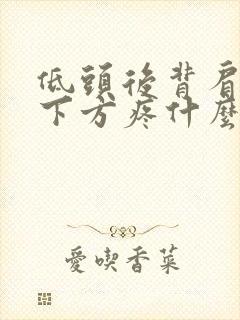 低頭後背肩
下方疼什麼
愛喫香菜